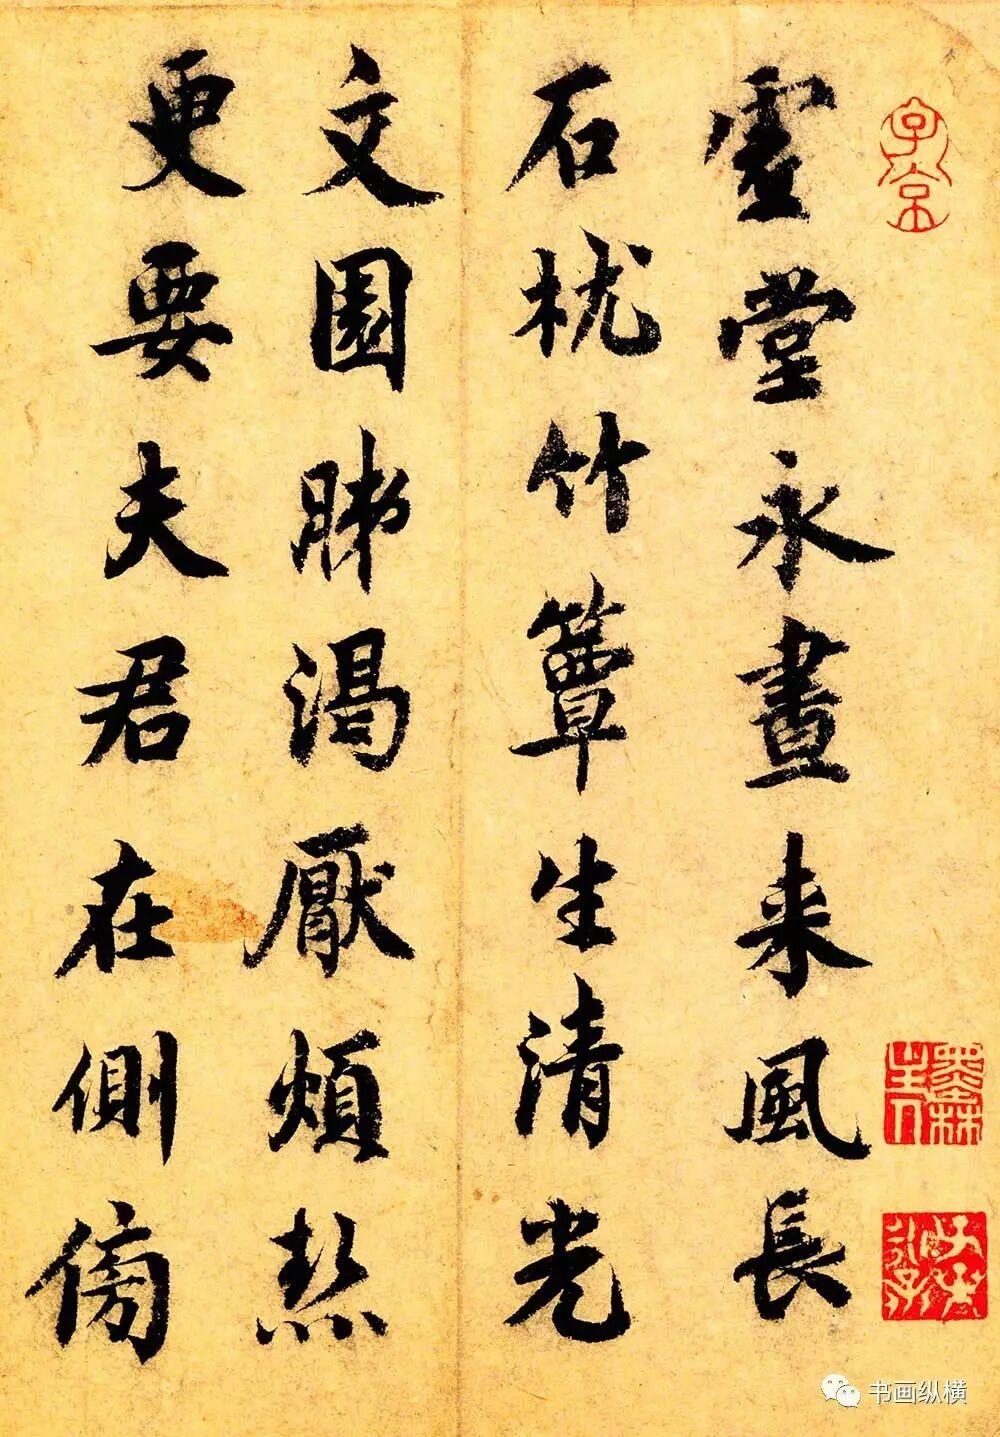 子京
虛堂永晝来風長
石枕竹簟生清光
文園肺渴厭煩熱
更要夫君在側傍
墨林
书画纵横